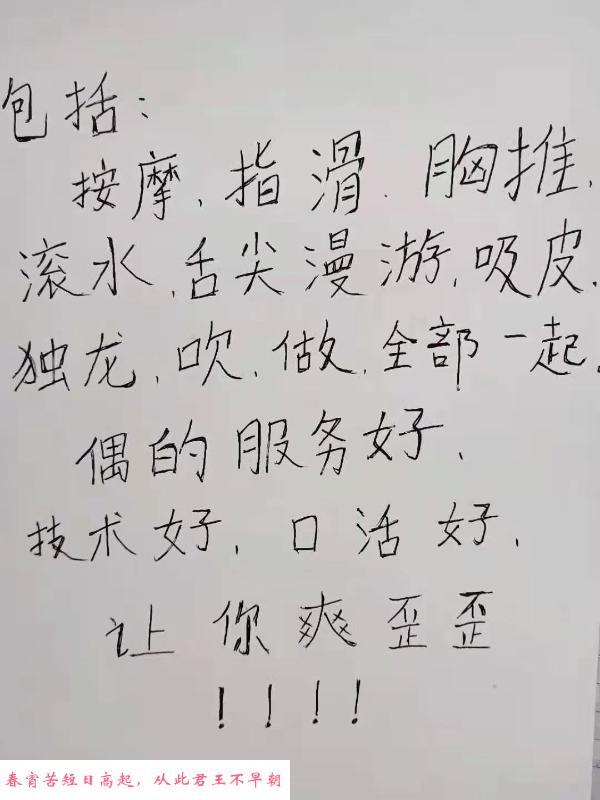 包括:
按摩、指滑、胸推、
滚水、舌尖漫游、吸皮、
独龙、吹、做、全部一起。
偶的服务好、
技术好、口活好、
让你爽歪歪
!!!!
春宵苦短日高起，从此君王不早朝